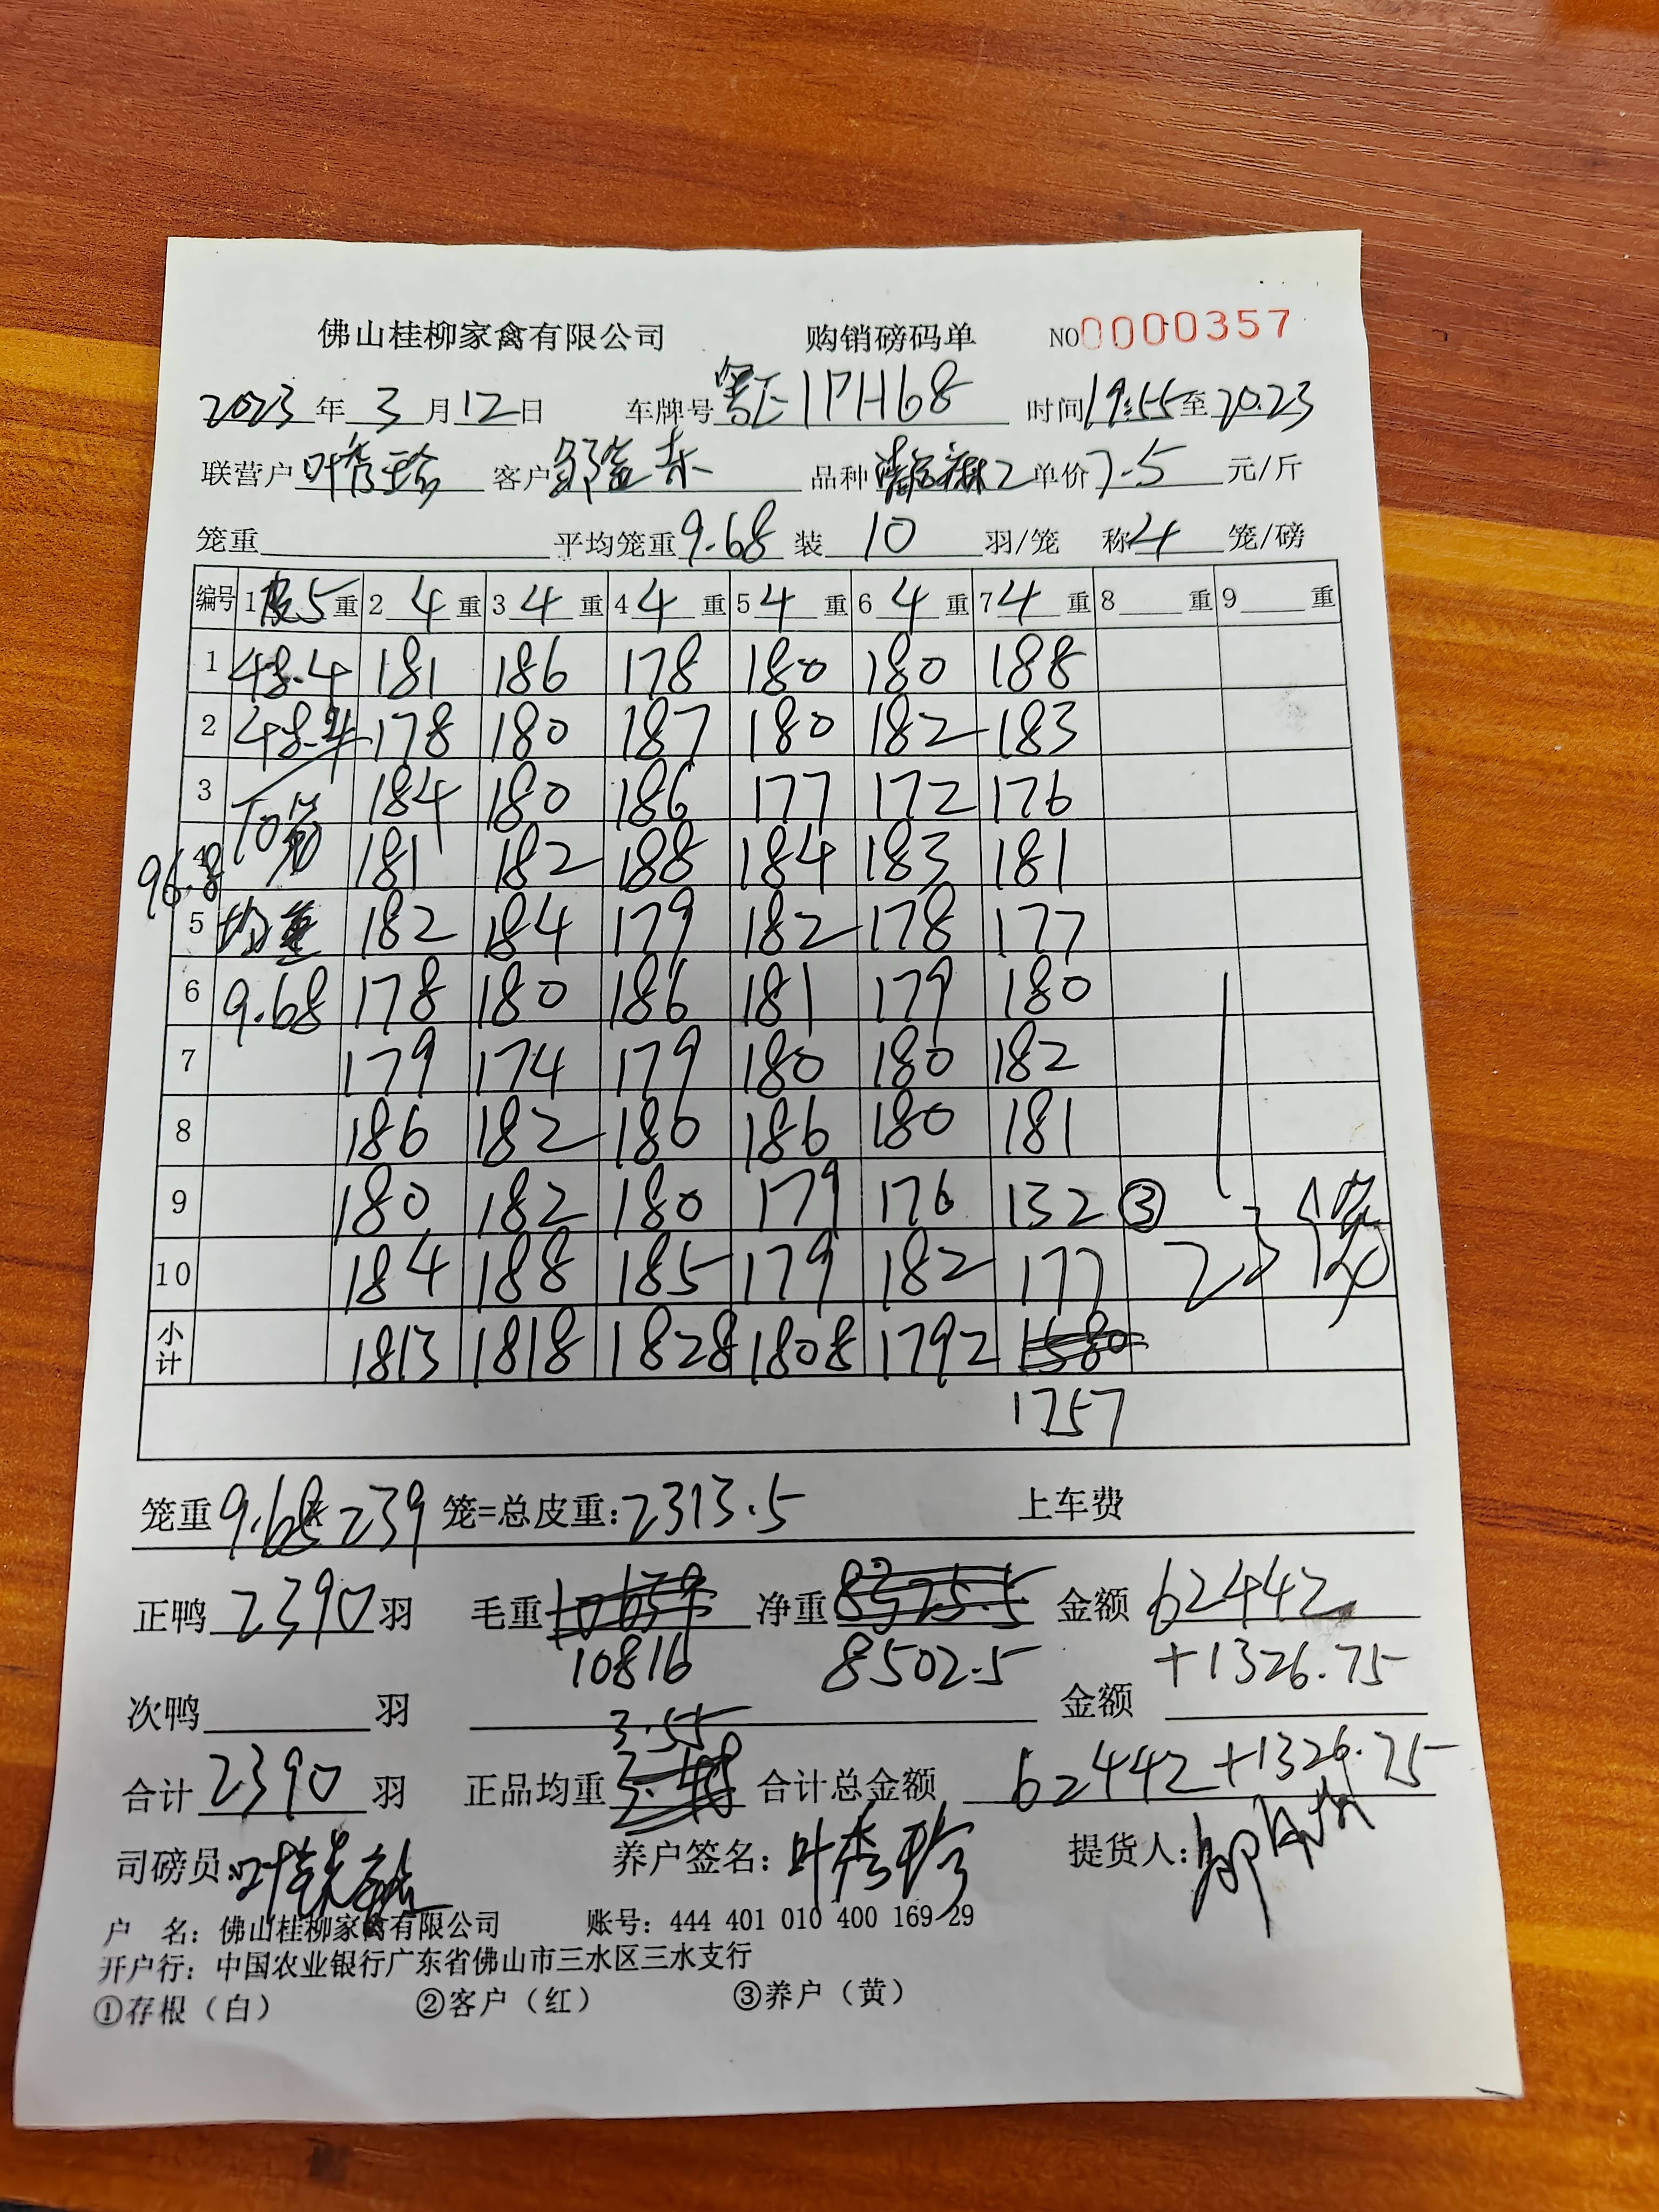 佛山桂柳家禽有限公司 购销磅码单 NO0000357
2023年3月12日 车牌号粤E1PH68 时间19:55至20.23
联营户叶秀珍 客户邹 东 品种 2 单价7.5元/斤
笼重 平均笼重9.68 装10羽/笼 称4笼/磅
编号 1皮5重 2 4重 3 4重 4 4重 5 4重 6 4重 7 4重 8 重 9 重
1 48.4 181 186 178 180 180 188
2 48.4 178 180 187 180 182 183
3 10笼 184 180 186 177 172 176
4 96.8 181 182 188 184 183 181
5 均重 182 184 179 182 178 177
6 9.68 178 180 186 181 179 180
7 179 174 179 180 180 182
8 186 182 180 186 180 181
9 180 182 180 179 176 132 ③
10 184 188 185 179 182 177 笼
小计 1813 1818 1828 1808 1792 1580
1757
笼重9.68×239笼=总皮重:2313.5 上车费
正鸭2390羽 毛重10639 净重8325.5 金额62442
10816 8502.5 +1326.75
次鸭 羽 金额
3.55
合计2390羽 正品均重3.48 合计总金额 62442+1326.75
司磅员: 养户签名:叶秀珍 提货人:
户 名:佛山桂柳家禽有限公司 账号:444 401 010 400 169 29
开户行:中国农业银行广东省佛山市三水区三水支行
①存根(白) ②客户(红) ③养户(黄)